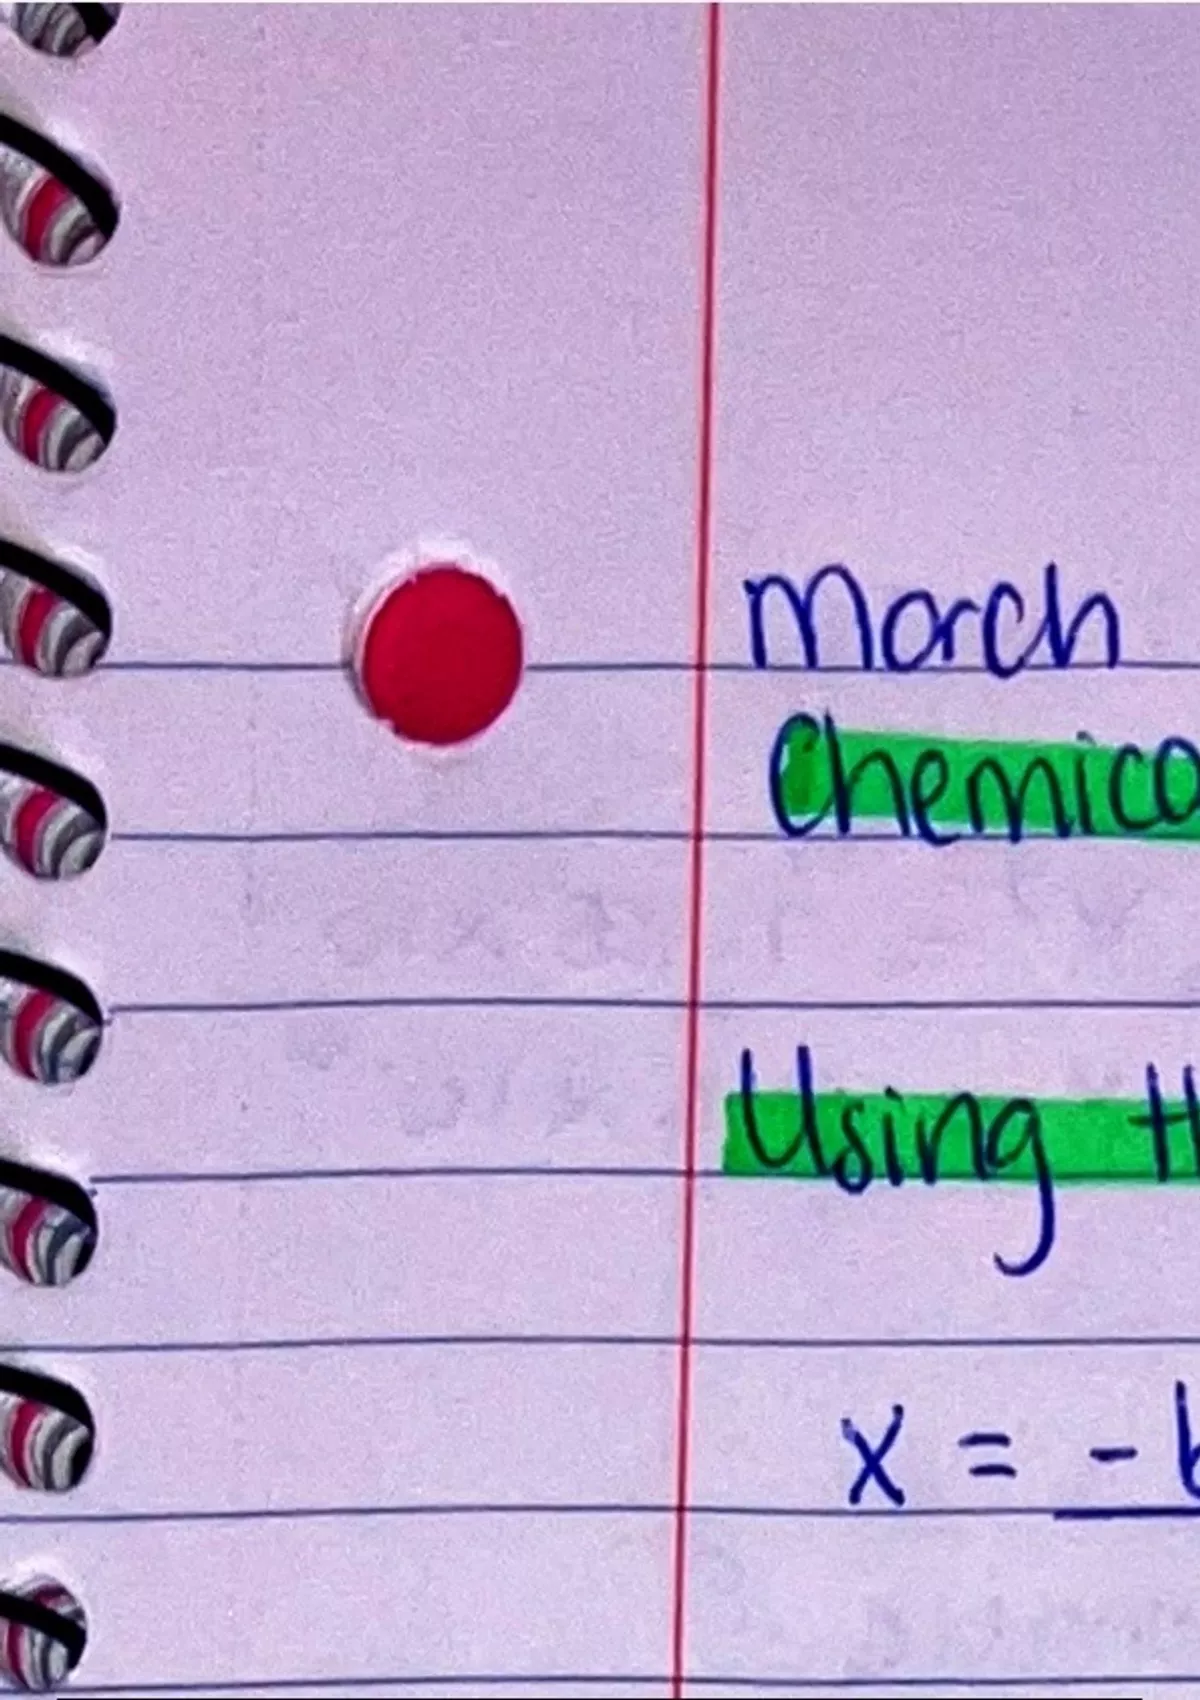 March
Chemica
Using H
x = - b